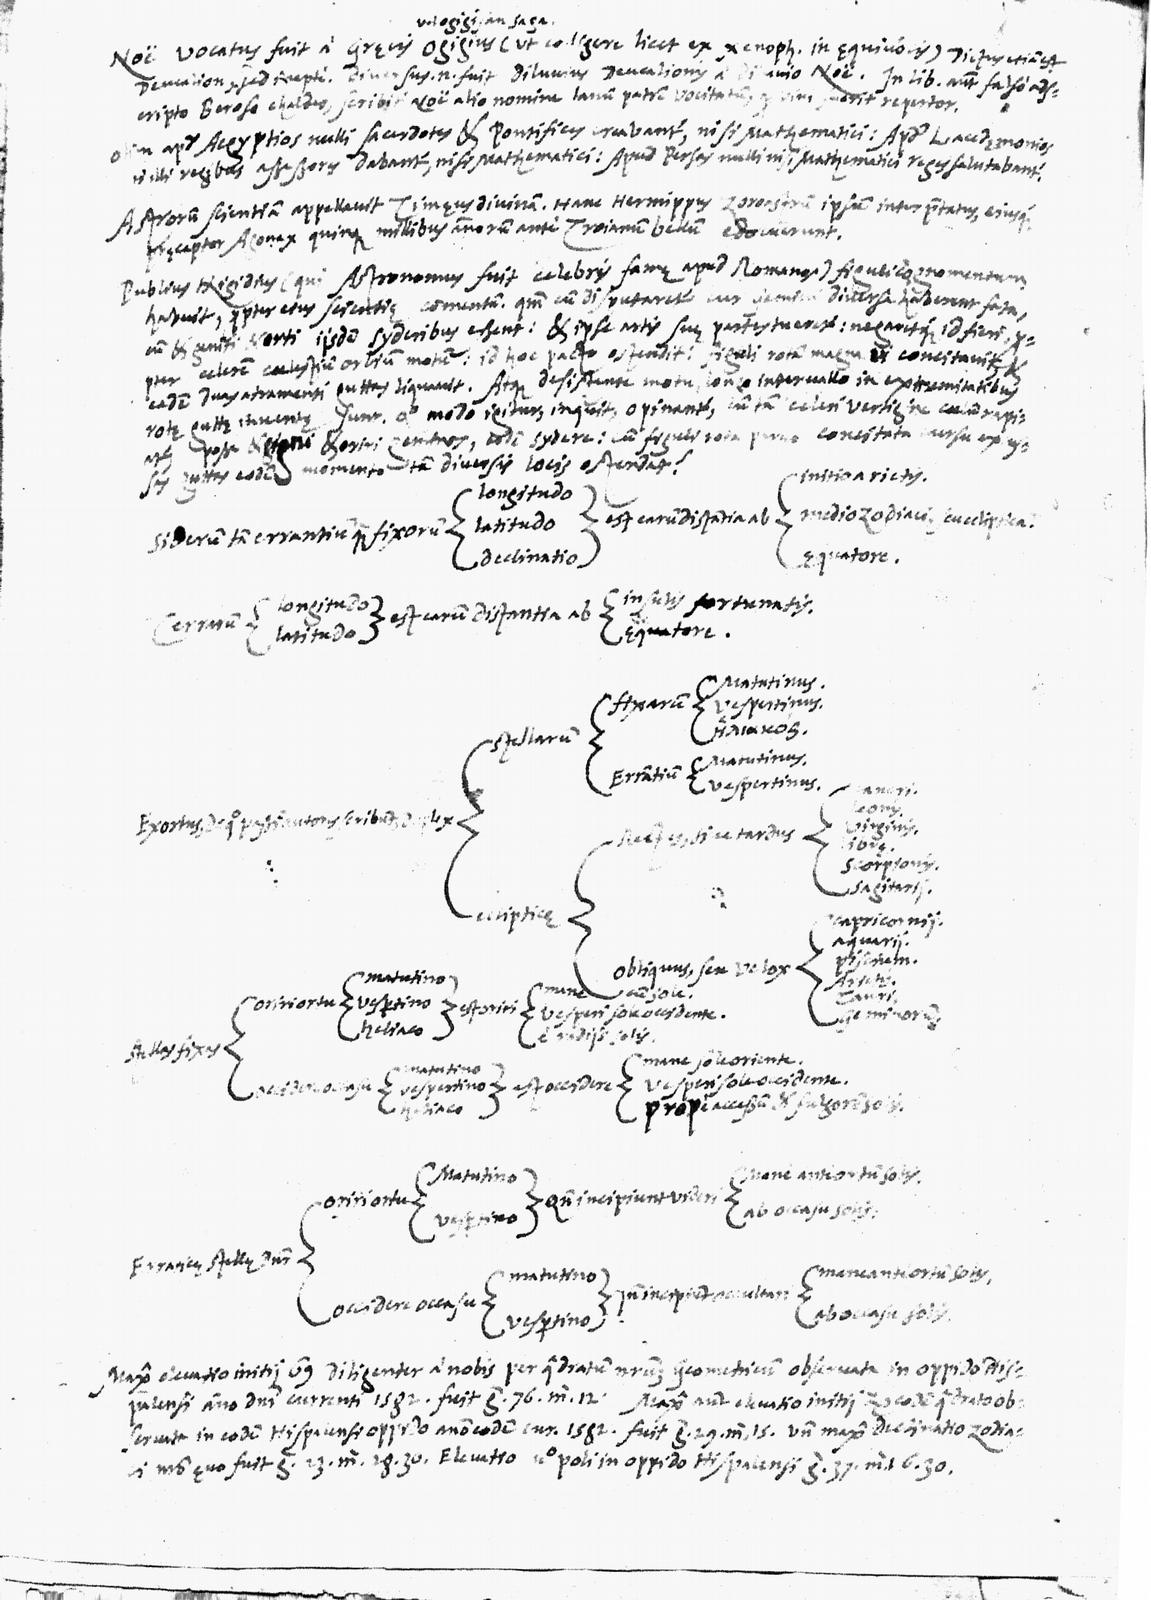 vel ogigisan saga.
Noë vocatus fuit à Gręcis Ogigius (ut colligere licet ex xenoph. in ęquivocis) Dictus etiã est
Deucalion, sed ineptè. Diversus .n. fuit diluvius Deucalionis à diluvio Noë. In lib. aũt falsò ads-
cripto Beroso chaldeo, scribit Noë alio nomine Ianũ patrẽ vocitatũ, vini fuerit repertor.
Olim apᵈ Aegyptios nulli sacerdotes & pontifices creabant, nisi Mathematici: Apᵈ Lacedęmonios
nulli regibus assessores dabant, nisi Mathematici: Apud Persas nulli nisi Mathematici reges salutabant.
Astrorũ scientiã appellavit Timęus divinã. Hanc Hermippus Zoroastrũ ipsum interp̃tatus, eiusq̃
pręceptor Agonax quinq millibus annorũ ante Troianum bellũ edocuerunt.
Publius Nigidius (qui Astronomus fuit celebris famę apud Romanos) figuli cognomentum
habuit, ppter eius scientię comentũ. qm̃ cũ disputaret cur gemini diversa haberent fata,
cũ & geniti & orti iisdẽ syderibus essent: & ipse artis suę partes tueret: negaretq id fieri, p-
pter celerẽ cœlestiũ orbiũ motũ: id hoc pacto ostendit: figuli rotã magna vi concitavit, &
eadẽ duas atramenti guttas liquavit. Atq desistente motu, longo intervallo in extremitatibus
rotę guttę inventę sunt. Qᵒ modo igitur, inquit, opinant, cũ tã celeri vertigine cœlũ rapi-
posse & gigni & oriri geminos, eodẽ sydere: cũ figuli rota parvo concitata cursu
guttas eodẽ momento tã diversis locis ostendat?
Siderũ tã errantiũ q̃ fixorũ { longitudo latitudo declinatio } est earũ distãtia ab { initio arietis. medio zodiaci, seu ecliptica. Equatore.
Terrarũ { longitudo latitudo } est earum distantia ab { insulis fortunatis. Equatore.
Exortus, de qᵒ passim autores scribũt, duplex
stellarũ
fixarũ { Matutinus. vespertinus. ἡλιακός.
Errãtiũ { Matutinus. vespertinus.
eclipticę
Rectus, sive tardus { Cancri. leonis. virginis. librę. Scorpionis. Sagitarij.
obliquus, seu velox { capricornij. aquarij. piscium. Arietis. Tauri. Geminorũ.
Stellas fixas
oriri ortu { matutino vesptino heliaco } est oriri { mane cũ sole. vesperi sole occidente. è radijs solis.
occidere occasu { matutino vespertino heliaco } est occidere { mane sole oriente. vesperi sole occidente. propè accessũ & fulgorẽ solis.
Erraticę stellę dnr̃
oriri ortu { Matutino vesptino } Qñ incipiunt videri { Mane ante ortũ solis. ab occasu solis.
occidere occasu { matutino vesptino } qñ incipiũt occultari { mane ante ortũ solis. ab occasu solis.
Maxᵃ elevatio initij ♋ diligenter à nobis per q̃dratũ nrũ Geometricũ observata in oppido His-
palensi anno dni currenti 1582. fuit g̃. 76. m̃. 12. Maxᵃ aut elevatio initij ♑ eodẽ q̃drato ob-
servata in eodẽ Hispalensi oppido anno eodẽ cur. 1582. fuit g̃. 29. m̃. 15. Vñ maxᵃ declinatio zodia-
ci nro ęvo fuit g̃. 23. m̃. 28. 30. Elevatio vᵒ poli in oppido Hispalensi g̃. 37. m̃. 16. 30.